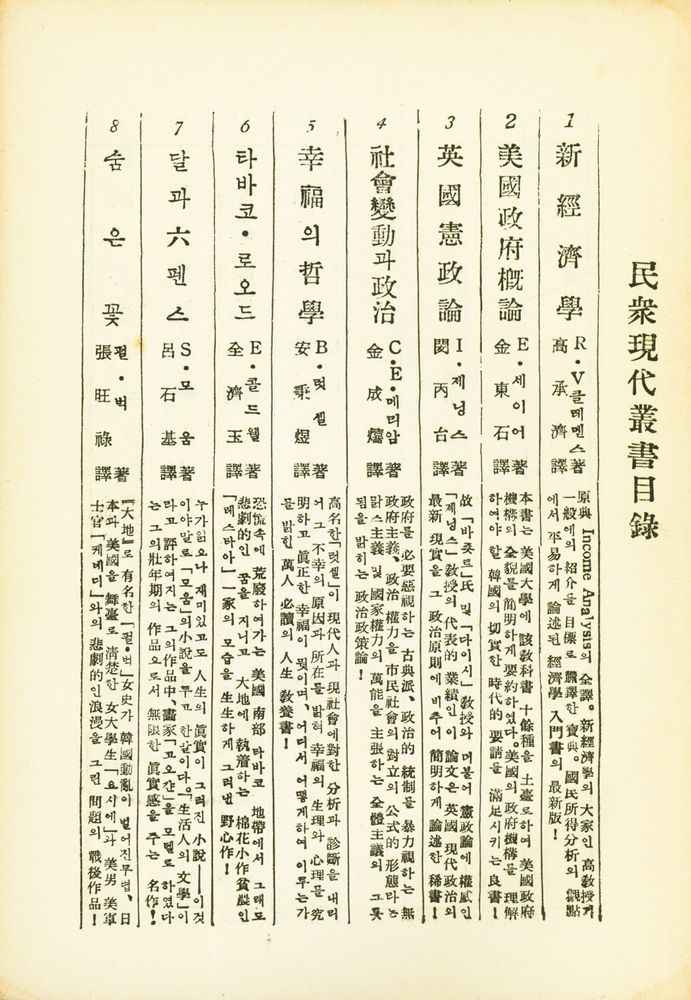 民衆現代叢書目錄
1 新經濟學 R・V클레멘스著
高承濟譯
原典 Income Analysis의 全譯。新經濟學의 大家인 高敎授가
一般에의 紹介를 目標로 飜譯한 寶典。國民所得分析의 觀點
에서 平易하게 論述된 經濟學 入門書의 最新版!
2 美國政府槪論 E・세이어著
金東石譯
本書는 美國大學에 該敎科書 十餘種을 土臺로하여 美國政府
機構의 全貌를 簡明하게 要約하였다。美國의 政府機構를 理解
하여야 할 韓國의 切實한 時代的 要請을 滿足시키는 良書!
3 英國憲政論 I・제닝스著
閔丙台譯
故「바죠트」氏 및 「다이시」敎授와 더불어 憲政論에 權威인
「제닝스」敎授의 代表的 業績인 이 論文은 英國 現代政治의
最新 現實을 그 政治原則에 비추어 簡明하게 論述한 稀書!
4 社會變動과政治 C・E・메리암著
金成熺譯
政府를 必要惡視하는 古典派、政治的 統制를 暴力視하는 無
政府主義、政治 權力을 市民社會의 對立의 公式的 形態라는
맑스主義 및 國家權力의 萬能을 主張하는 全體主義의 그릇
됨을 밝히는 政治政策論!
5 幸福의哲學 B・럿셀著
安秉煜譯
高名한「럿셀」이 現代人과 現社會에對한 分析과 診斷을 내려
어 그 不幸의 原因과 所在를 밝혀 幸福의 生理와 心理를 究
明하고 眞正한 幸福이 뭣이며、어디서 어떻게하여 이루는가
를 밝힌 萬人 必讀의 人生 敎養書!
6 타바코・로오드 E・콜드웰著
全濟玉譯
恐慌속에 荒廢하여가는 美國 南部 타바코 地帶에서 그래도
悲劇的인 꿈을 지니고 大地에 執着하는 棉花小作貧農인
「레스타아」一家의 모습을 生生하게 그려낸 野心作!
7 달과六펜스 S・모옴著
呂石基譯
누가읽으나 재미있고도 人生의 眞實이 그려진 小說——이것
이야말로「모옴」의 小說을 두고 한말이다。「生活人의 文學」이
라고 評하여지는 그의作品中、畫家「고오간」을 모델로 하였다
는 그의壯年期의 作品으로서 無限한 眞實感을 주는 名作!
8 숨은꽃 펄・벅著
張旺祿譯
『大地』로 有名한「펄・벅」女史가 韓國動亂이 벌어진무렵、日
本과 美國을 舞臺로 淸楚한 女大學生「요시에」와 美男 美軍
士官「케네디」와의 悲劇的인浪漫을 그린 問題의 戰後作品!